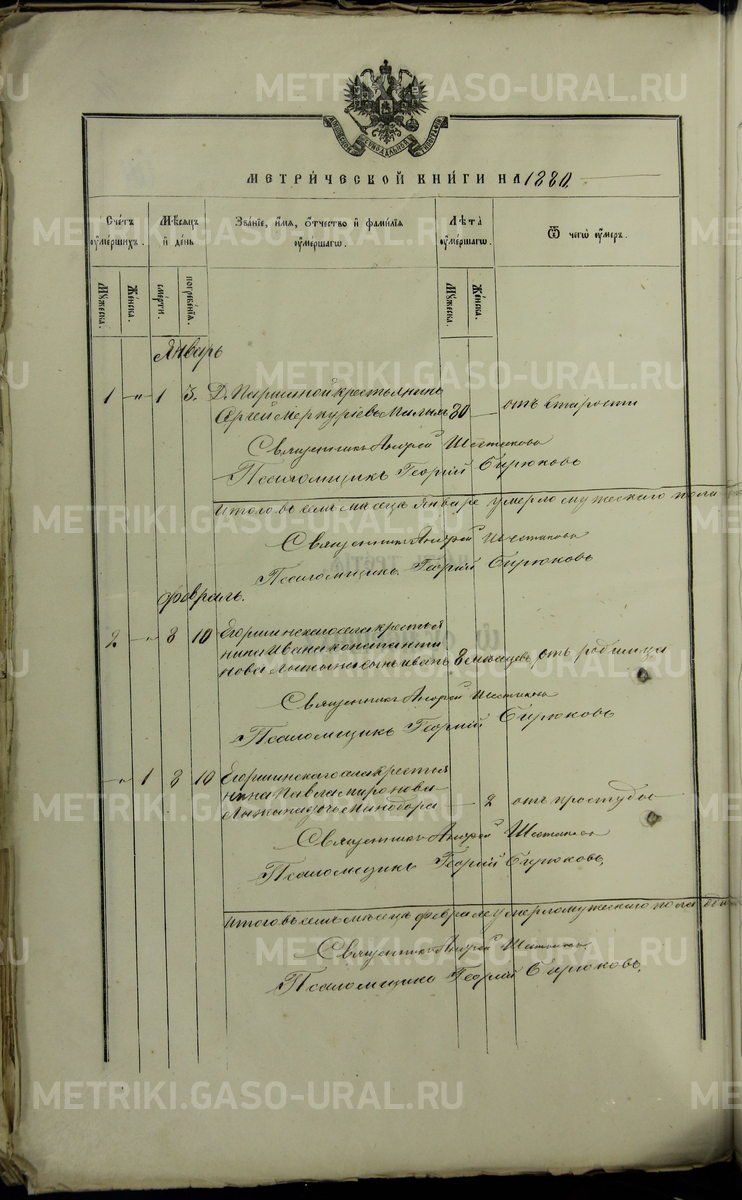 METRIKI.GASO-URAL.RU
МЕТРИ́ЧЕСКОЙ КНИ́ГИ НА 1880.
Сче́тъ ᲂу҆ме́ршихъ.
Мѣ́сѧцъ и҆ де́нь
Зва́нїе, и҆́мѧ, ѻ҆́тчество и҆ фами́лїѧ ᲂу҆ме́ршагѡ.
Лѣ́та ᲂу҆ме́ршагѡ.
Ѿ чегѡ̀ ᲂу҆́меръ.
Мꙋ́жеска.
Же́нска.
сме́рти.
погребе́нїѧ.
Мꙋ́жеска.
Же́нска.
Январь
1 " 1 3. Д. Паршиной крестьянинъ
Сергей Меркуріевъ 80 — отъ старости
Священникъ Андрей Шестаковъ
Псаломщикъ Георгій Бирюковъ
Итого въ семъ мѣсяцѣ Январѣ умерло мужескаго пола
Священникъ Андрей Шестаковъ
Псаломщикъ Георгій Бирюковъ
Февраль.
2 — " 8 10 Егоршинскаго села крестья
нина Ивана Константи
нова сынъ Иванъ 8 мѣсяцевъ отъ родимца
Священникъ Андрей Шестаковъ
Псаломщикъ Георгій Бирюковъ
— " 1 8 10 Егоршинскаго села крестья
нина Павла Миронова
дочь Минодора — 2 отъ простуды
Священникъ Андрей Шестаковъ
Псаломщикъ Георгій Бирюковъ
Итого въ семъ мѣсяцѣ Февралѣ умерло мужескаго пола
Священникъ Андрей Шестаковъ
Псаломщикъ Георгій Бирюковъ.